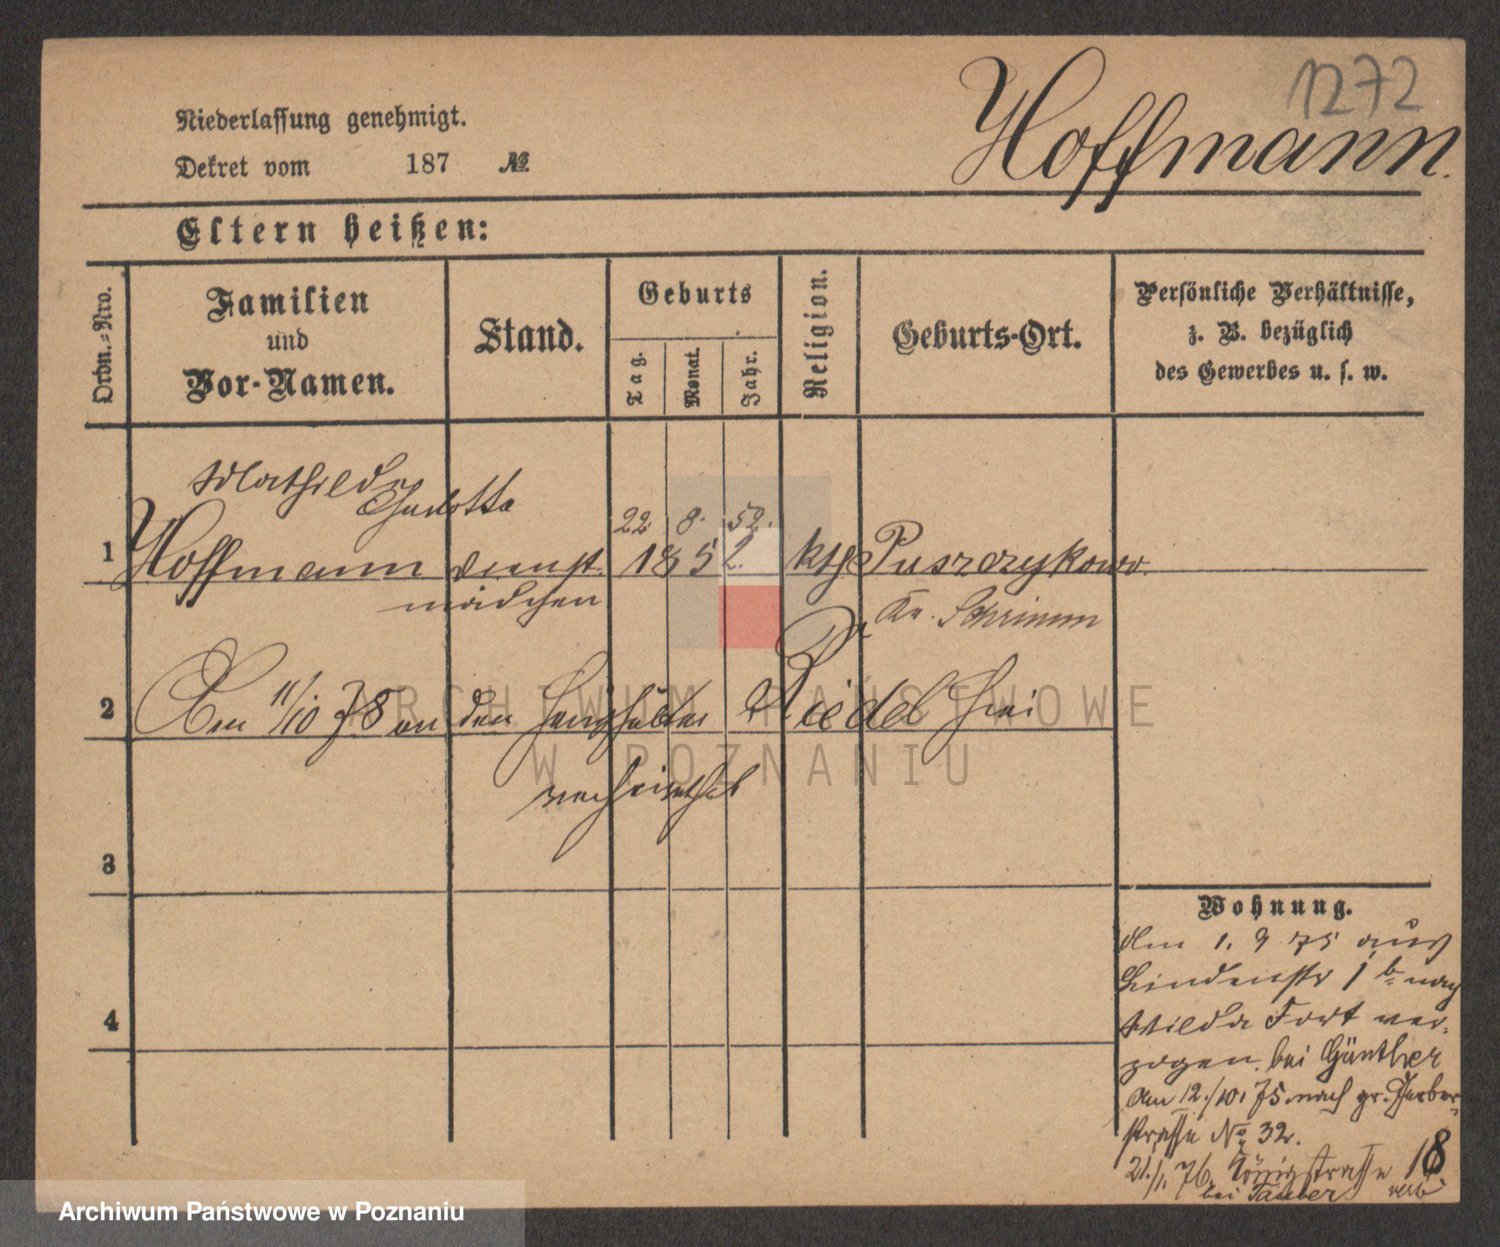 1272
Hoffmann.
Niederlassung genehmigt.
Dekret vom 187 №
Eltern heißen:
Ordn.-Nro.
Familien
und
Vor-Namen.
Stand.
Geburts
Tag.
Monat.
Jahr.
Religion.
Geburts-Ort.
Persönliche Verhältnisse,
z. B. bezüglich
des Gewerbes u. s. w.
Mathilde
Charlotte
22. 8. 52.
1 Hoffmann Dienst 1852. kth Puszczykowo
mädchen Kr. Schrimm
2 Am 11/10 78 an den Riedel hier
verheirathet
3
4
Wohnung.
Am 1. 9 75 aus
Lindenstr 1 b nach
Wilda Fort ver-
zogen. bei Günther
Am 12./10. 75 nach gr. Gerber-
straße No 32.
21./1. 76. Königstraße 18
bei Tauber
ARCHIWUM PAŃSTWOWE
W POZNANIU
Archiwum Państwowe w Poznaniu